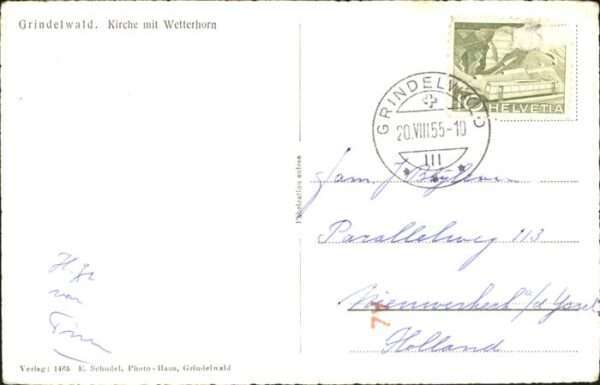 Grindelwald. Kirche mit Wetterhorn
HELVETIA
GRINDELWALD
20.VIII.55-10
III
Fam. J.
Parallelweg 113
Nieuwerkerk a/d Yssel
Holland
74
H. Gr.
van
Verlag: E. Schudel, Photo-Haus, Grindelwald